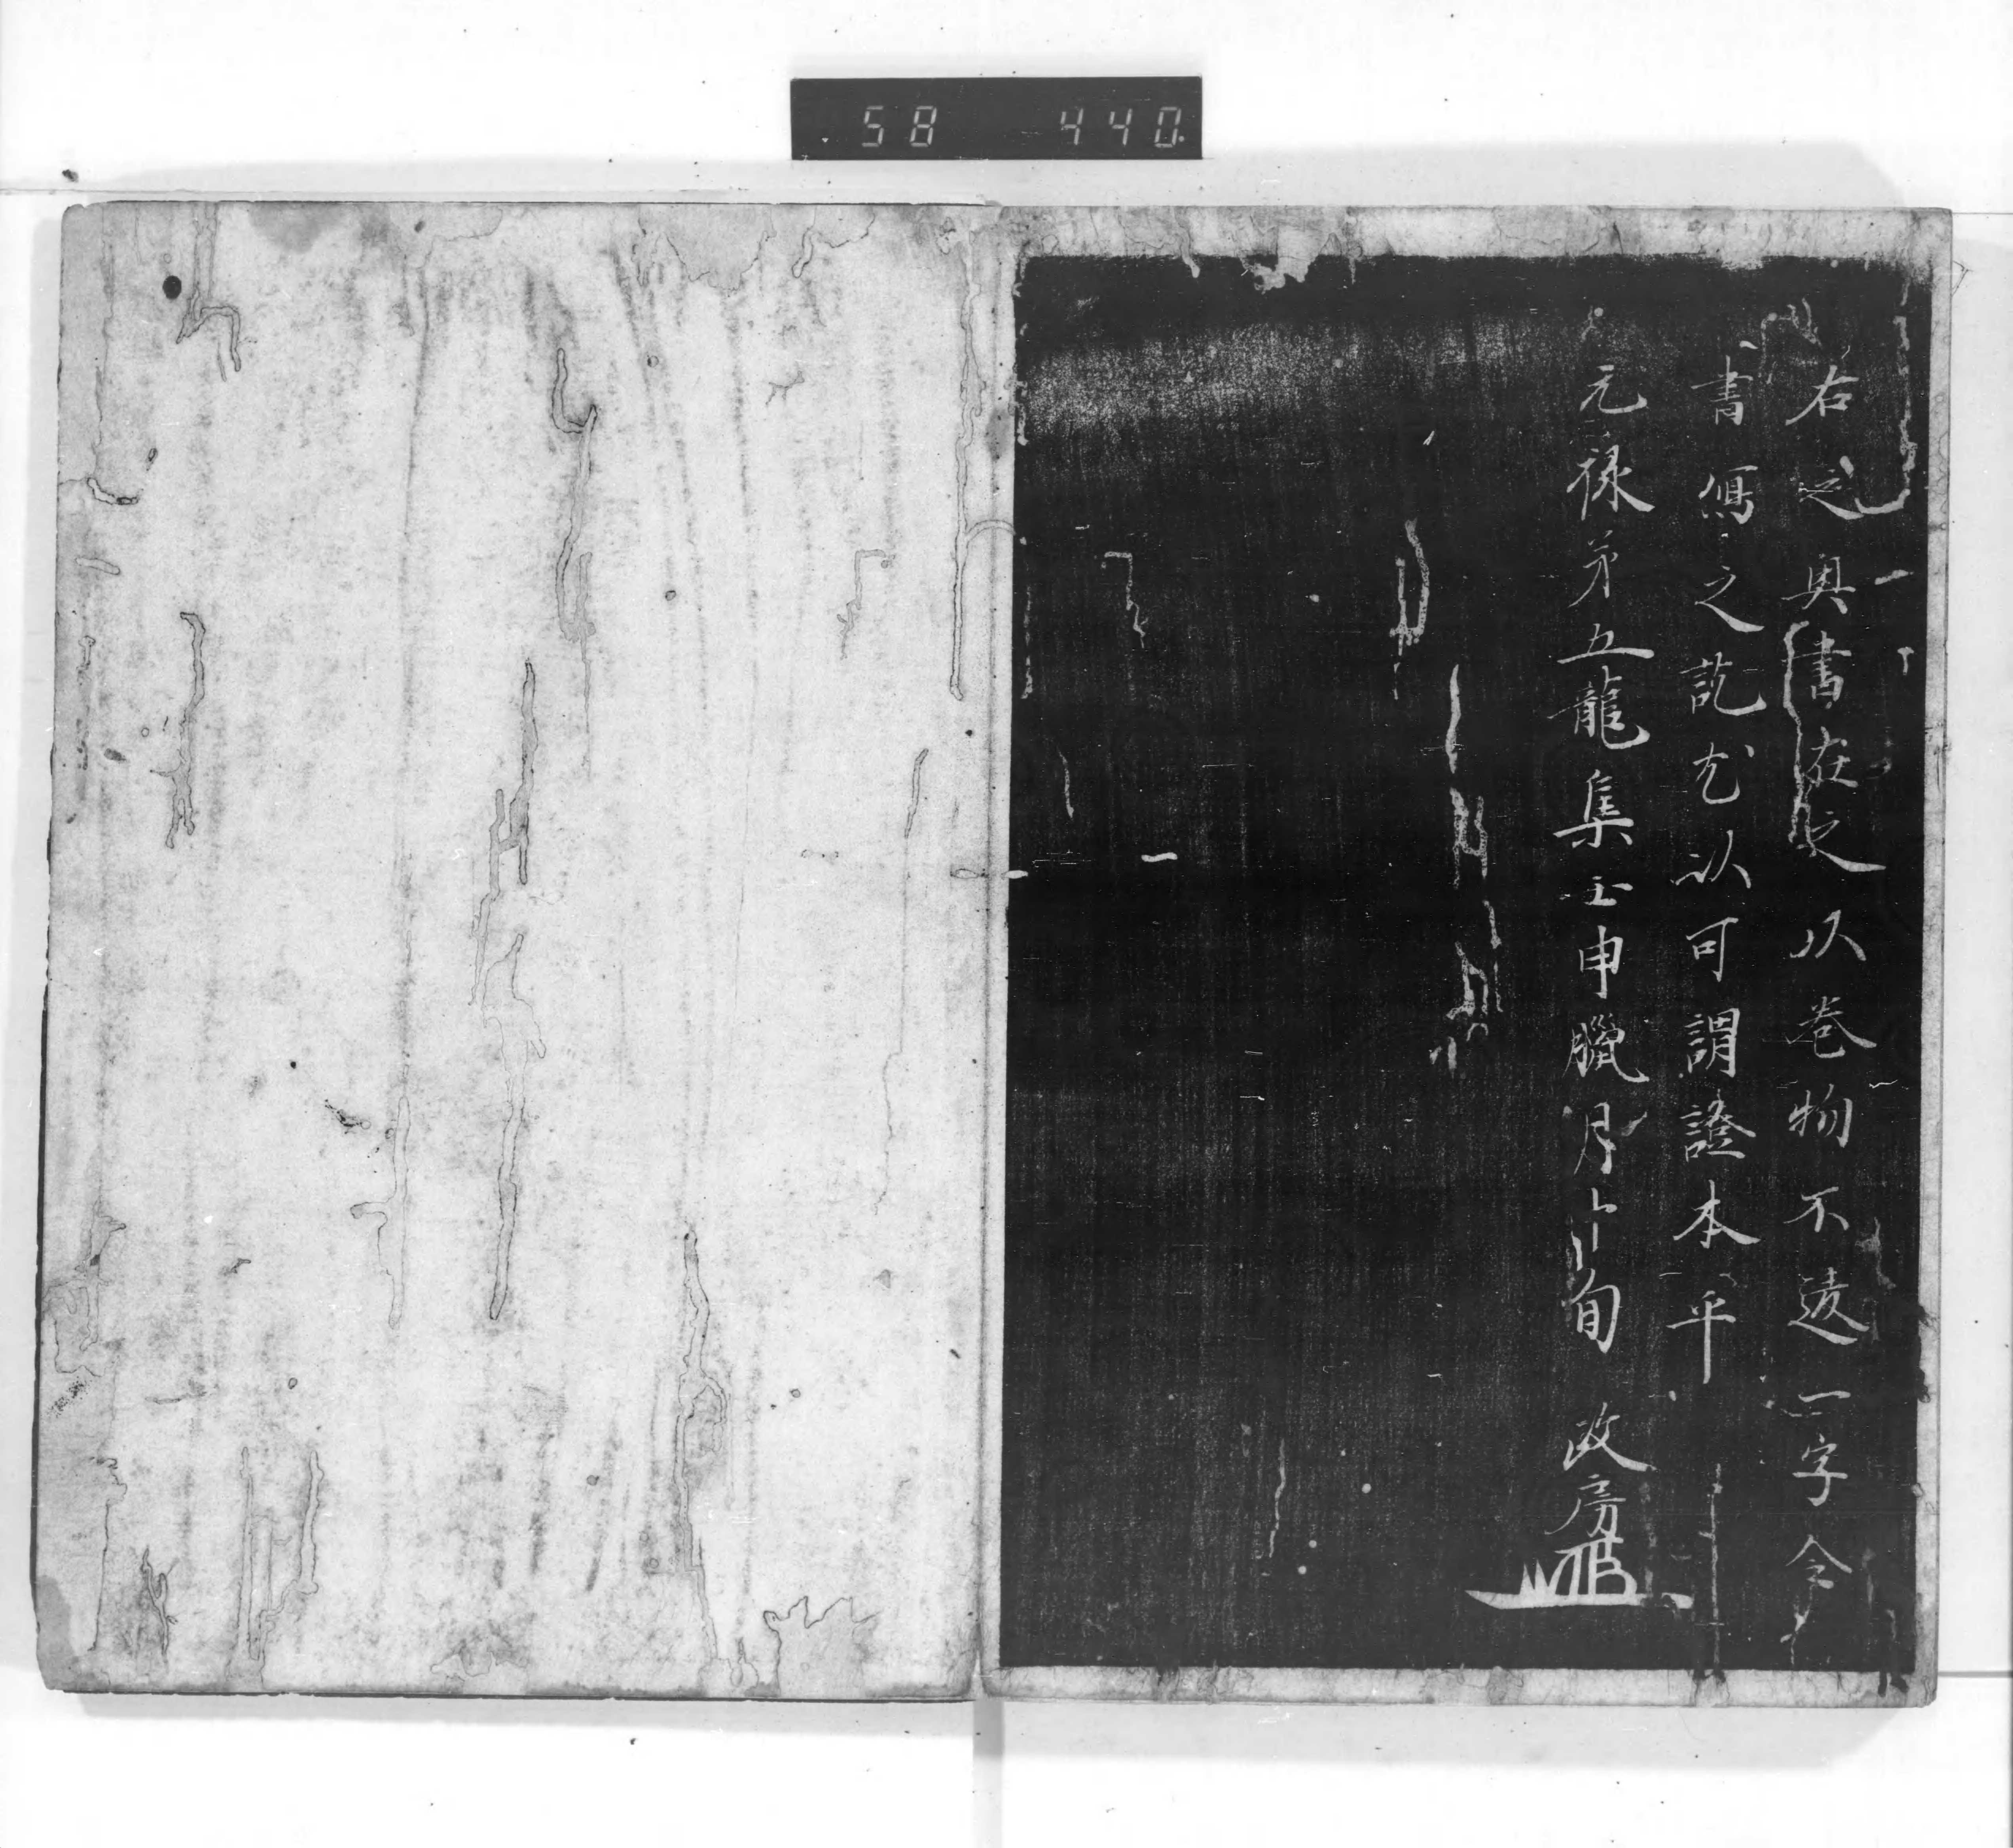 58 440
右之奥書在之以巻物不違一字令
書寫之訖尤以可謂證本乎
元禄第五龍集壬申臘月中旬 政房